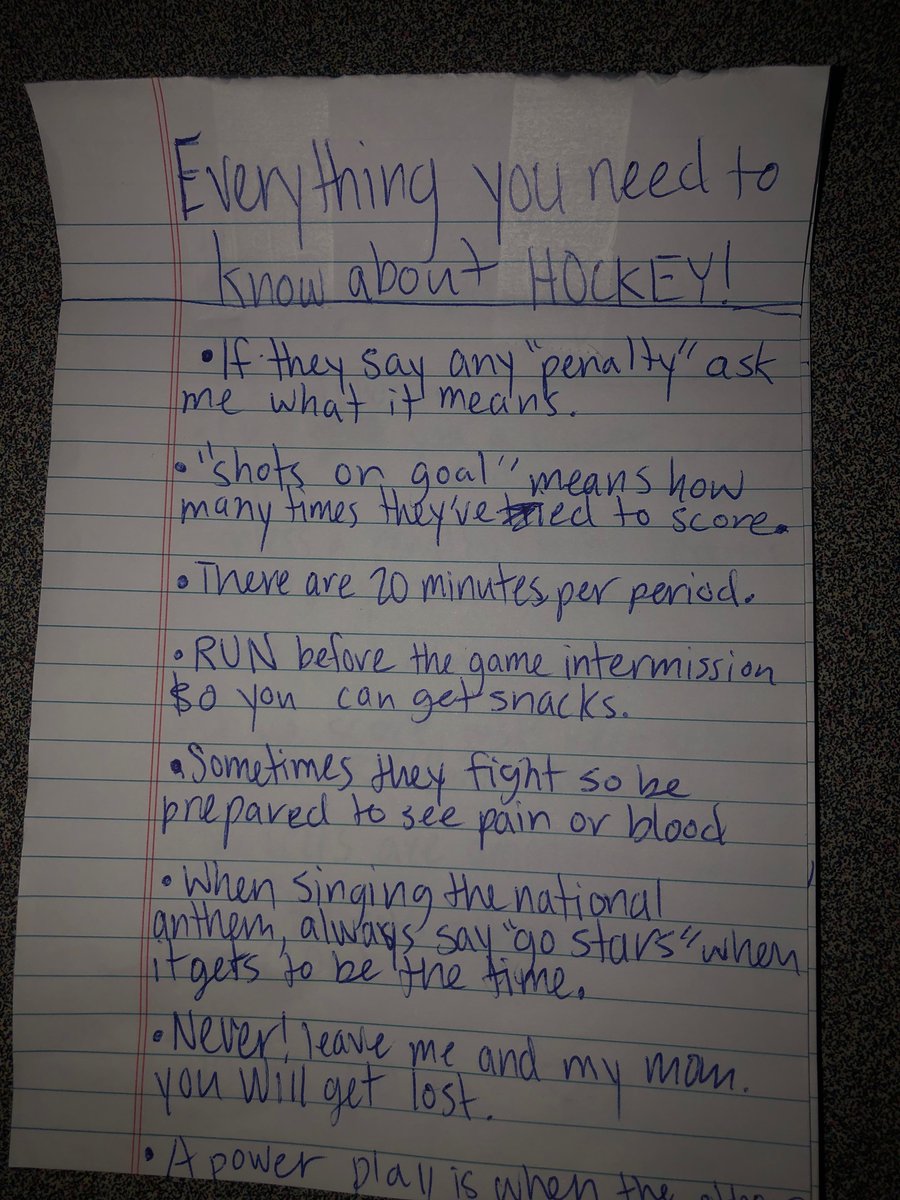 Everything you need to
know about HOCKEY!
• If they say any "penalty" ask
me what it means.
• "shots on goal" means how
many times they've tried to score.
• There are 20 minutes per period.
• RUN before the game intermission
so you can get snacks.
• Sometimes they fight so be
prepared to see pain or blood
• When singing the national
anthem, always say "go stars" when
it gets to be the time.
• Never! leave me and my mom.
you will get lost.
• A power play is when the